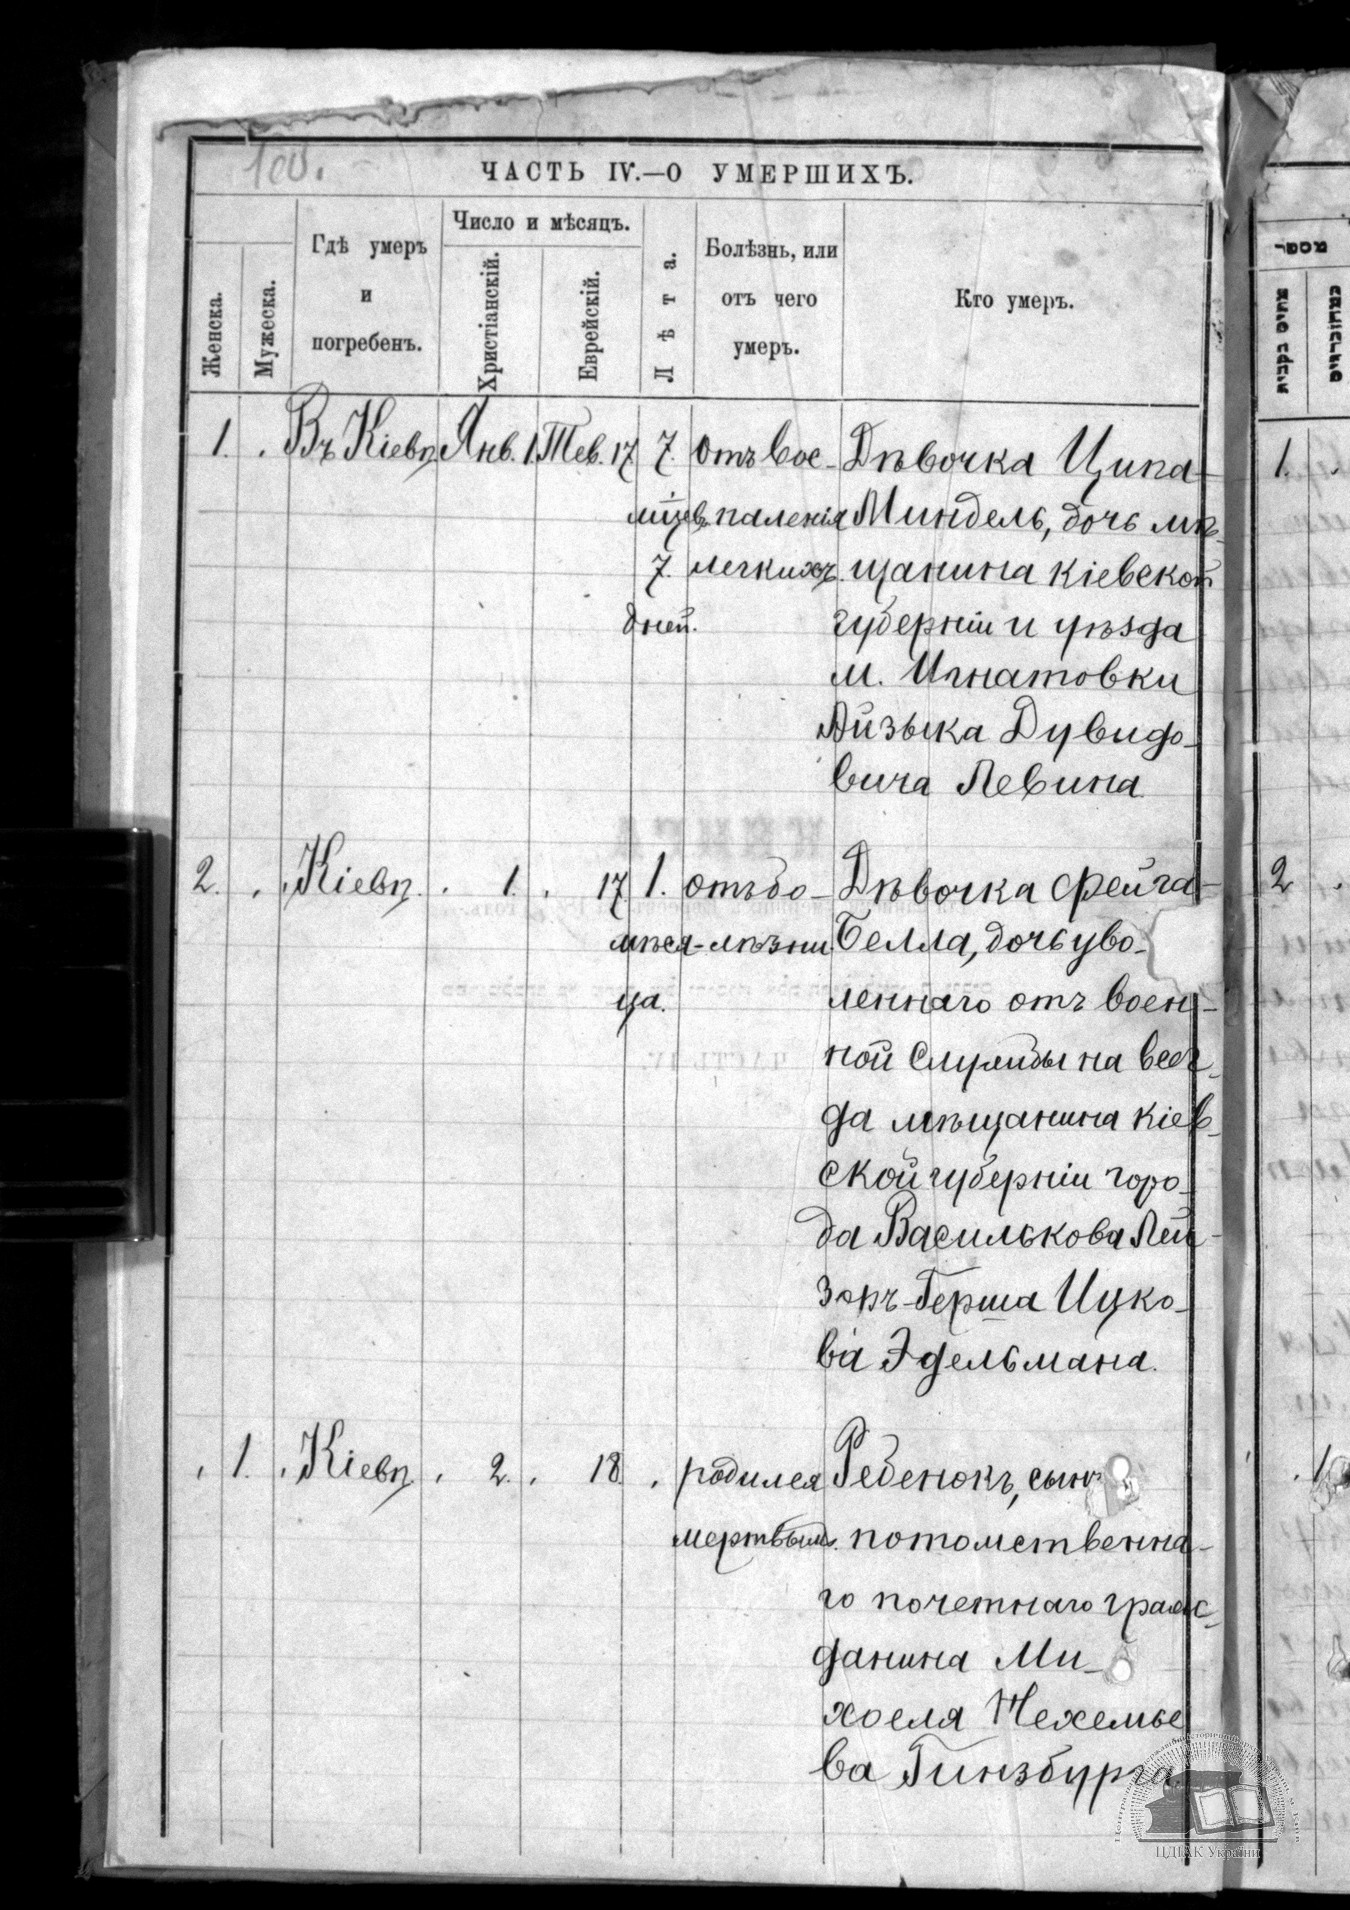 100.
ЧАСТЬ IV.—О УМЕРШИХЪ.
Женска.
Мужеска.
Гдѣ умеръ
и
погребенъ.
Число и мѣсяцъ.
Христіанскій.
Еврейскій.
Лѣта.
Болѣзнь, или
отъ чего
умеръ.
Кто умеръ.
1. Въ Кіевѣ Янв. 1. Тев. 17 7. отъ вос- Дѣвочка Ципа-
паленія Миндель, дочь мѣ-
7. легкихъ. щанина Кіевской
дней. губерніи и уѣзда
м. Игнатовки
Айзыка Дувидо-
вича Левина
2. Кіевѣ. 1. 17 1. отъ бо- Дѣвочка Фейга-
мѣся- лѣзни Белла, дочь уво-
ца. леннаго отъ воен-
ной службы на всег-
да мѣщанина Кіев-
ской губерніи горо-
да Василькова Лей-
зоръ-Герша Ицко-
ва Эдельмана.
1. Кіевѣ. 2. 18. родился Ребенокъ, сынъ
мертвымъ. потомственна-
го почетнаго граж-
данина Ми-
хоеля Нехемье
ва Гинзбурга.
1.
2
1
ЦДІАК України